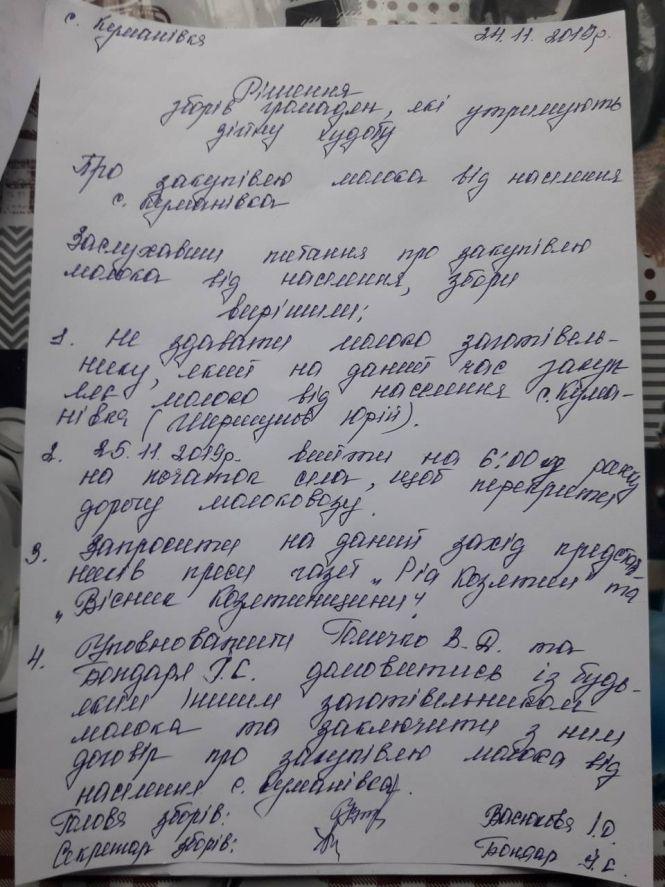 с. Куманівка 24.11.2019р.
Рішення
зборів громадян, які утримують
дійну худобу
Про закупівлю молока від населення
с. Куманівка
Заслухавши питання про закупівлю
молока від населення, збори
вирішили:
1. Не здавати молоко заготівель-
нику, який на даний час закуп
ляє молоко від населення с. Кума-
нівка ( Юрій).
2. 25.11.2019р. вийти на 6:00 ранку
на початок села, щоб перекрити
дорогу молоковозу.
3. Запросити на даний захід представ
ників преси газет "Рід Козятин" та
"Вісник Козятинщини".
4. Уповноважити В.Д. та
Бондаря Г.С. домовитись із будь-
яким іншим заготівельником
молока та заключити з ним
договір про закупівлю молока від
населення с. Куманівка.
Голова зборів: Васюкова І.О.
Секретар зборів: Бондар Г.С.